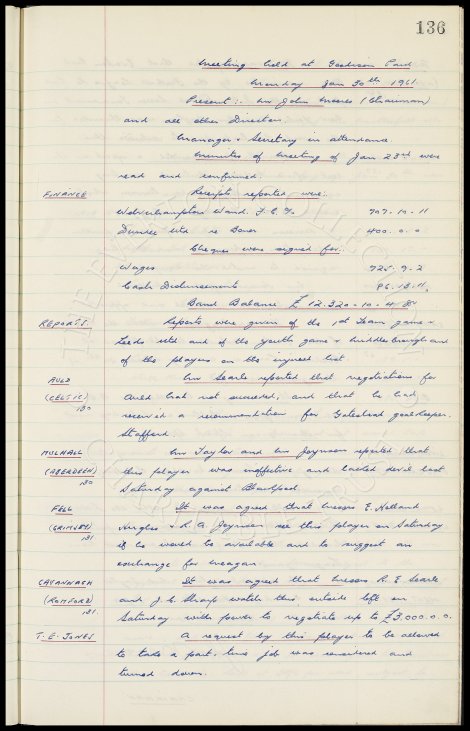 136
Meeting held at Goodison Park
Monday Jan 30th 1961.
Present:- Mr John Moores (Chairman)
and all other Directors.
Manager & Secretary in attendance
Minutes of Meeting of Jan 23rd were
read and confirmed.
FINANCE Receipts reported were:.
Wolverhampton Wand. F.C. 707-10-11
Dundee Utd re 400. 0. 0
Cheques were signed for:
Wages 725. 9. 2
Cash Disbursements 86. 13. 11
Bank Balance £12.320-10-4
REPORTS. Reports were given of the 1st Team game v
Leeds Utd and of the youth game v Middlesbrough and
of the players on the injured list
AULD Mr Searle reported that negotiations for
(CELTIC) Auld had not succeeded, and that he had
130 received a recommendation for Gateshead goalkeeper.
Stafford.
MULHALL Mr Taylor and Mr Joynson reported that
(ABERDEEN) this player was ineffective and lacked devil last
130 Saturday against
FELL It was agreed that Messrs E. Holland
(GRIMSBY) Hughes & R.A. Joynson see this player on Saturday
131 if he would be available and to suggest an
exchange for Meagan.
CAVANNAGH It was agreed that Messrs R. E Searle
(ROMFORD) and J. C. Sharp watch this outside left on
131 Saturday with power to negotiate up to £3,000.0.0.
T. E. JONES A request by this player to be allowed
to take a part. time job was considered and
turned down.